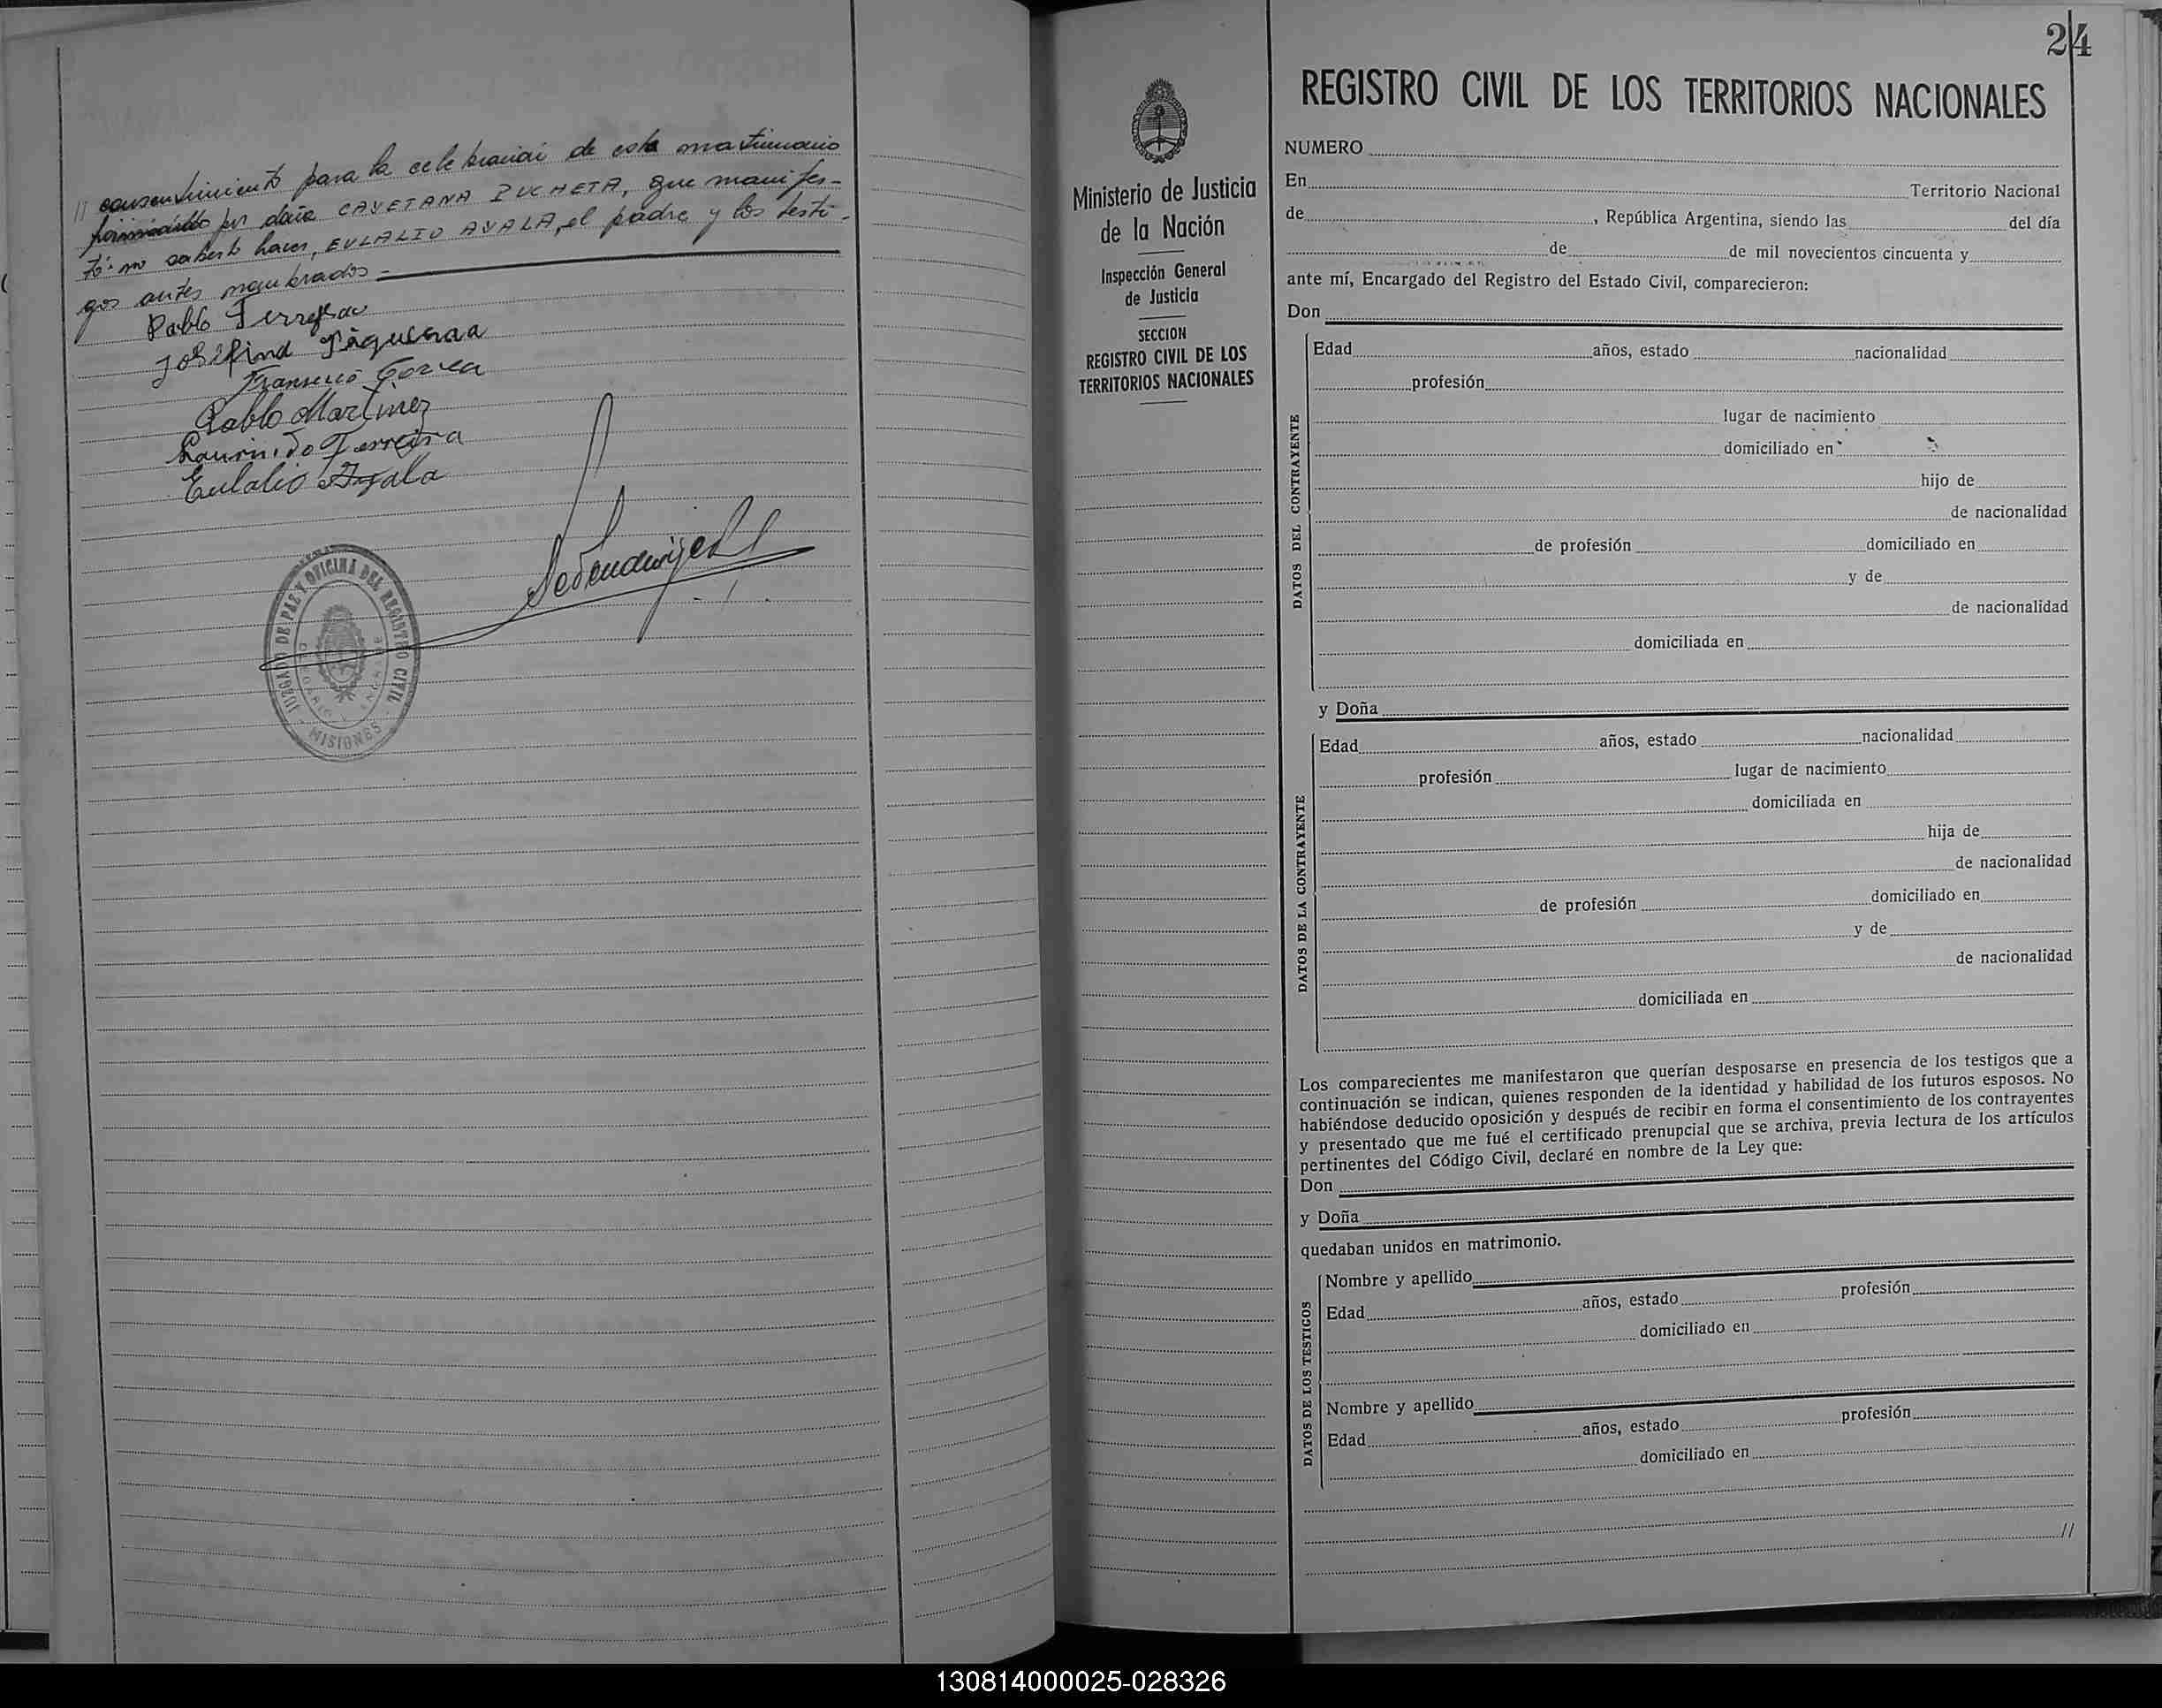 // consentimiento para la celebración de este matrimonio
por doña CAYETANA ZUCHETA, que manifes-
tó no saberlo hacer, EULALIO AYALA, el padre y los testi-
gos antes nombrados.-
Pablo
Josefina
Francisco Correa
Pablo Martinez
Ferreira
Eulalio Ayala
JUZGADO DE PAZ Y OFICINA DEL REGISTRO CIVIL
MISIONES
24
Ministerio de Justicia
de la Nación
Inspección General
de Justicia
SECCION
REGISTRO CIVIL DE LOS
TERRITORIOS NACIONALES
REGISTRO CIVIL DE LOS TERRITORIOS NACIONALES
NUMERO
En Territorio Nacional
de , República Argentina, siendo las del día
de de mil novecientos cincuenta y
ante mí, Encargado del Registro del Estado Civil, comparecieron:
Don
DATOS DEL CONTRAYENTE
Edad años, estado nacionalidad
profesión
lugar de nacimiento
domiciliado en
hijo de
de nacionalidad
de profesión domiciliado en
y de
de nacionalidad
domiciliada en
y Doña
DATOS DE LA CONTRAYENTE
Edad años, estado nacionalidad
profesión lugar de nacimiento
domiciliada en
hija de
de nacionalidad
de profesión domiciliado en
y de
de nacionalidad
domiciliada en
Los comparecientes me manifestaron que querían desposarse en presencia de los testigos que a
continuación se indican, quienes responden de la identidad y habilidad de los futuros esposos. No
habiéndose deducido oposición y después de recibir en forma el consentimiento de los contrayentes
y presentado que me fué el certificado prenupcial que se archiva, previa lectura de los artículos
pertinentes del Código Civil, declaré en nombre de la Ley que:
Don
y Doña
quedaban unidos en matrimonio.
DATOS DE LOS TESTIGOS
Nombre y apellido
Edad años, estado profesión
domiciliado en
Nombre y apellido
Edad años, estado profesión
domiciliado en
//
130814000025-028326